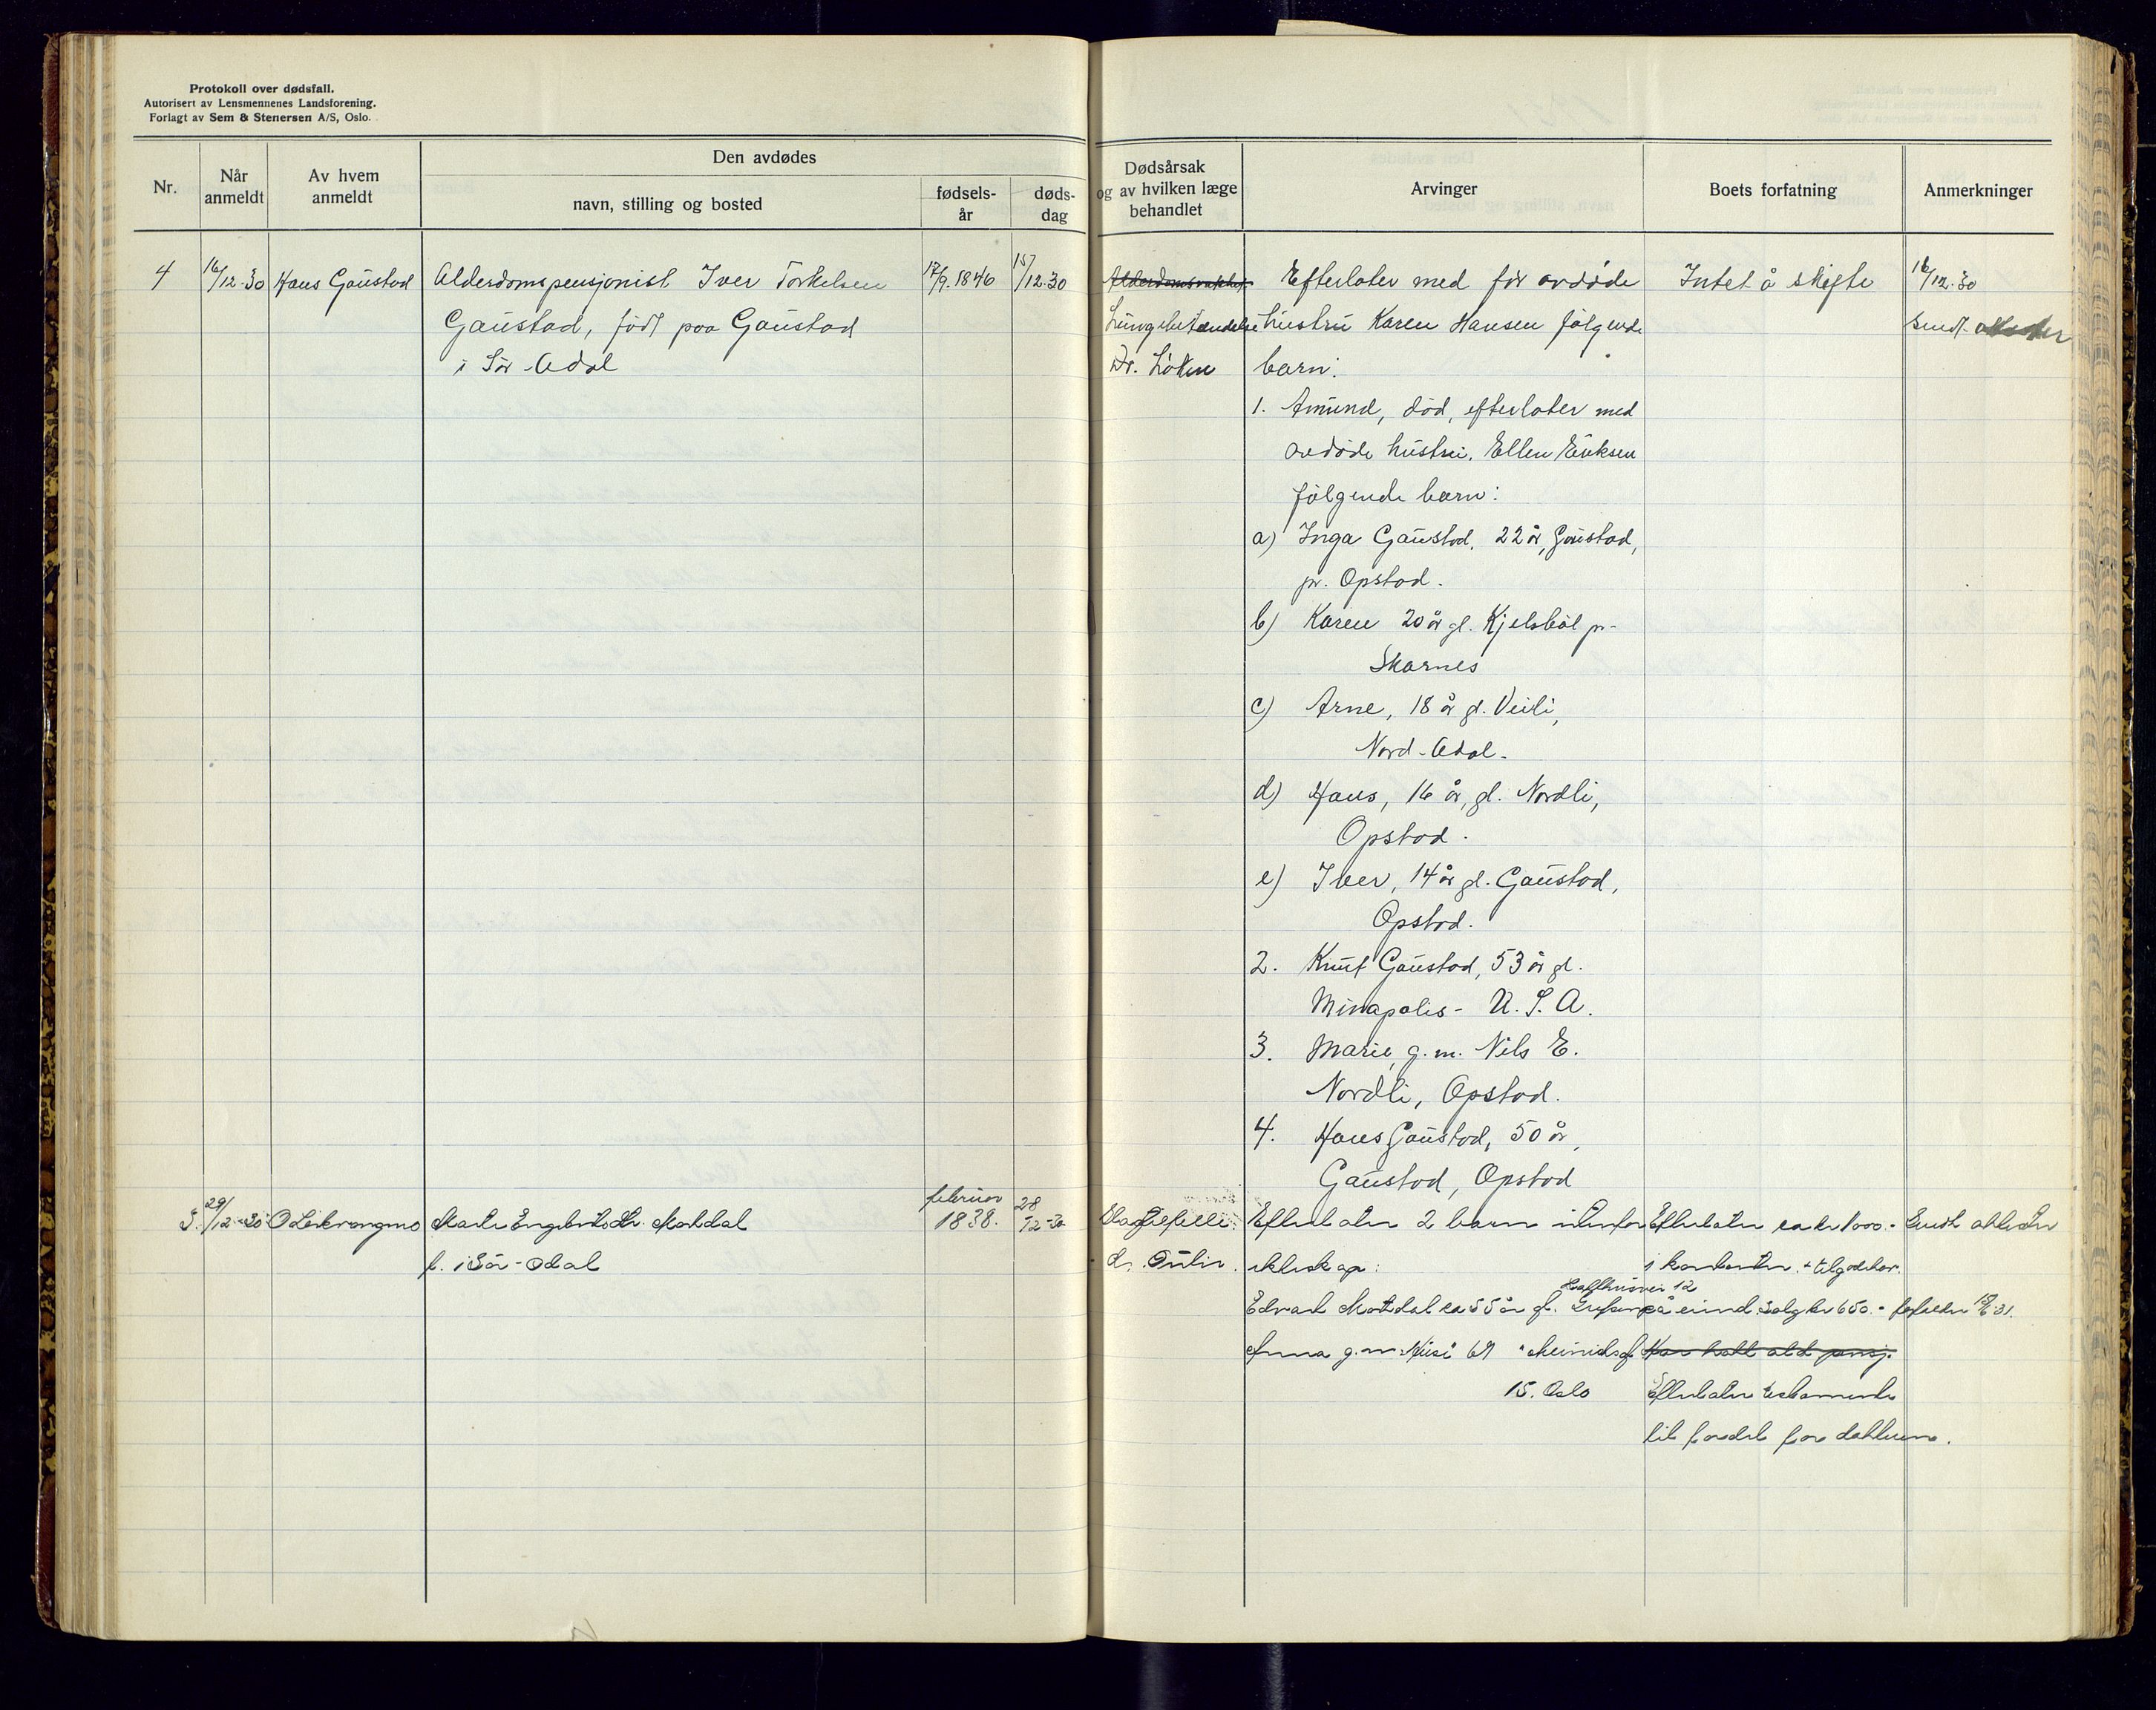 Protokoll over dødsfall.
Autorisert av Lensmennenes Landsforening.
Forlagt av Sem & Stenersen A/S, Oslo.
Nr.
Når anmeldt
Av hvem anmeldt
Den avdødes
navn, stilling og bosted
fødsels-år
døds-dag
Dødsårsak og av hvilken læge behandlet
Arvinger
Boets forfatning
Anmerkninger
4
16/12-30
Hans Gaustad
Alderdomspensjonist Iver Torkelsen
Gaustad, født paa Gaustad
i Sør-Odal
17/9.1846
15/12.30
Lungebetændelse
Dr. Løken
Efterlater med før avdøde
hustru Karen Hansen følgende
barn:
1. Amund, død, efterlater med
avdøde hustru, Ellen Eriksen
følgende barn:
a) Inga Gaustad, 22 år, Gaustad,
pr. Opstad.
b) Karen 20 år gl. Kjelsbøl pr.
Skarnes
c) Arne, 18 år gl. Veili,
Nord-Odal.
d) Hans, 16 år, gl. Nordli,
Opstad.
e) Iver, 14 år gl. Gaustad,
Opstad.
2. Knut Gaustad, 53 år gl.
Minapolis - U.S.A.
3. Marie, g.m. Nils E.
Nordli, Opstad.
4. Hans Gaustad, 50 år,
Gaustad, Opstad
Intet å skifte
16/12.30
Sendt
5.
29/12-30
Marte Engebretsdtr. Matdal
f. i Sør-Odal
februar
1838.
28/12-30
Slagtilfelle.
Efterlater 2 barn utenfor
ekteskap:
Edvard Matdal ca 55 år gl. Grefsen
Anna g.m. 69 "
15. Oslo
Efterlater ca kr 1000.-
i kontanter + tilgodehav.
på eiend. salg kr 650.-
Har hatt ald. pensj.
Efterlater testamente
til fordel for datteren.
Sendt attester